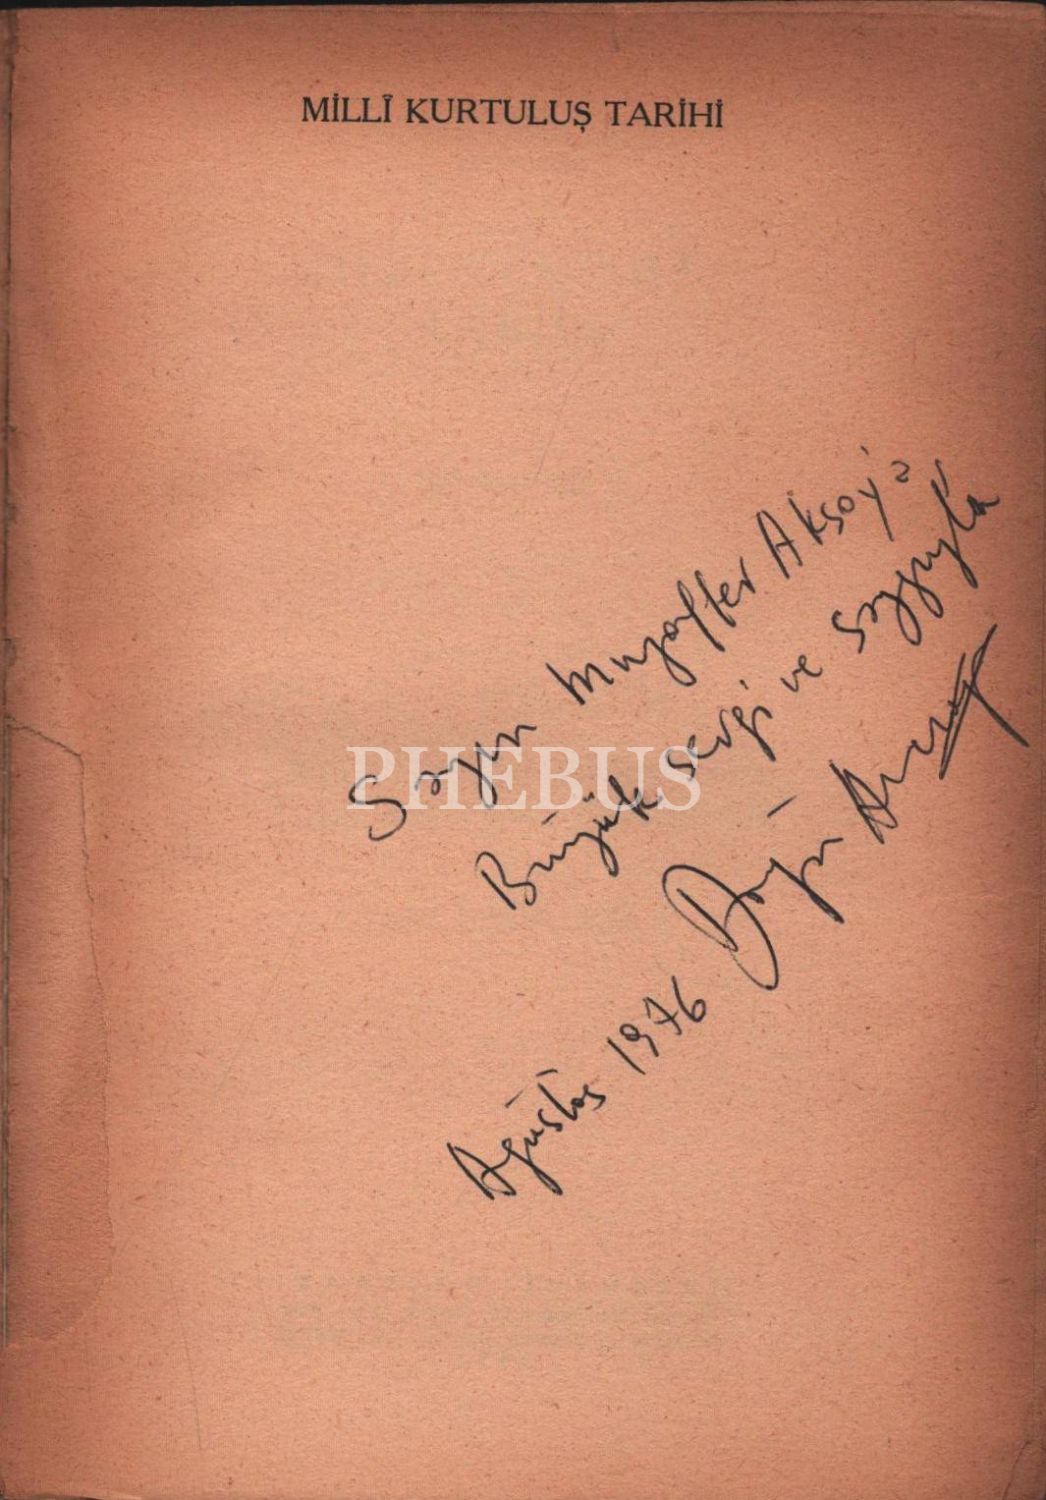 MİLLÎ KURTULUŞ TARİHİ
Sayın Muzaffer Aksoy'a
Büyük sevgi ve saygıyla
Doğan Avcıoğlu
Ağustos 1976
PHEBUS